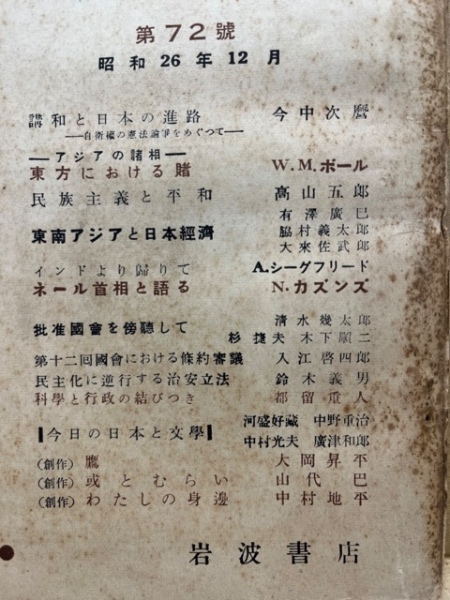 第72號
昭和26年12月
講和と日本の進路 今中次麿
――自衛權の憲法論爭をめぐつて――
―アジアの諸相―
東方における賭 W.M.ボール
民族主義と平和 高山五郎
有澤廣巳
東南アジアと日本經濟 脇村義太郎
大來佐武郎
インドより歸りて A.シーグフリード
ネール首相と語る N.カズンズ
清水幾太郎
批准國會を傍聽して 杉捷夫 木下順二
第十二回國會における條約審議 入江啓四郎
民主化に逆行する治安立法 鈴木義男
科學と行政の結びつき 都留重人
河盛好藏 中野重治
【今日の日本と文學】
中村光夫 廣津和郎
(創作) 鷹 大岡昇平
(創作) 或とむらい 山代巴
(創作) わたしの身邊 中村地平
岩波書店